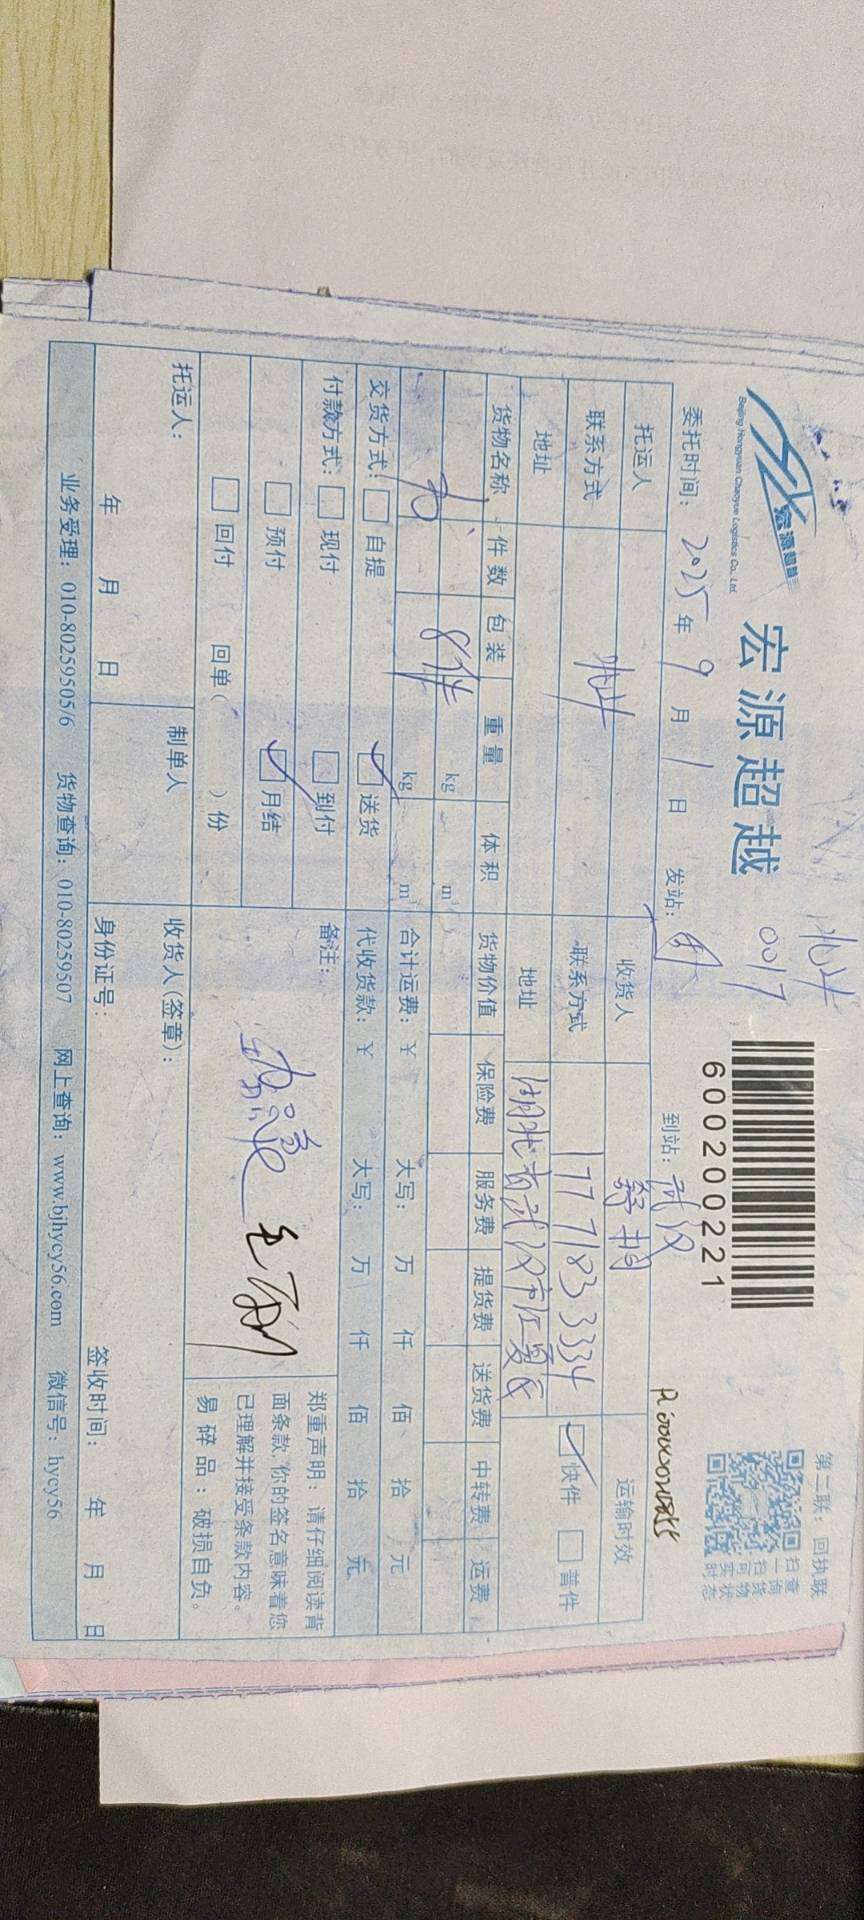 第二联：回执联
宏源超越
Beijing Hongyuan Chaoyue Logistics Co., Ltd.
宏源超越
0017
6000200221
扫查
一询
扫货
可物
实状
时态
委托时间：2025年9月1日 发站： 到站：武汉
托运人 收货人 运输时效
联系方式 联系方式 17771833334 快件 普件
地址 地址 湖北省武汉市江夏区
货物名称 件数 包装 重量 体积 货物价值 保险费 服务费 提货费 送货费 中转费 运费
8件 kg m³
kg m³ 合计运费：￥ 大写： 万 仟 佰 拾 元
交货方式： 自提 送货 代收货款：￥ 大写： 万 仟 佰 拾 元
付款方式： 现付 到付 备注：
预付 月结
回付 回单( )份
郑重声明：请仔细阅读背
面条款，你的签名意味着您
已理解并接受条款内容。
易碎品：破损自负。
托运人： 制单人 收货人(签章)：
年 月 日 身份证号： 签收时间： 年 月 日
业务受理：010-80259505/6 货物查询：010-80259507 网上查询：www.bjhycy56.com 微信号：hycy56